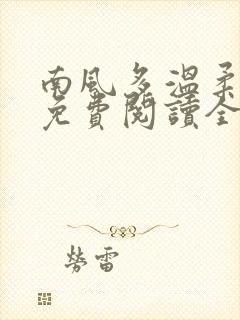 南風多溫柔
免費閱讀全
勞雷